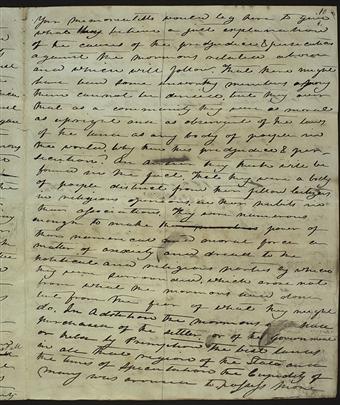 10
Your memorialists would beg here to give
what they believe a full explanation
of the causes of the prejudice & persecution
against the mormons related above
and which will follow. That there might
be some unworthy members among
them cannot be denied but they aver
that as a community they were as moral
as upright and as observant of the laws
of the land as any body of people in
the world. Why then this prejudice & per
secution? An answer they trust will be
found in the fact, that they were a body
of people distinct from their fellow citizens
in religious opinions, in their habits and
their associations. They were numerous
enough to make the power of
their numerical and moral force a
matter of anxiety and dread to the
political and religious parties by which
they were surrounded, which arose not
from what the mormons had done
but from the fear of what they might
do. In addition the mormons had
purchased of the settlers or of the Government
or taken by Preemption the best lands
in all those regions of the State and
the times of speculation the cupidity of
many was aroused to possess those